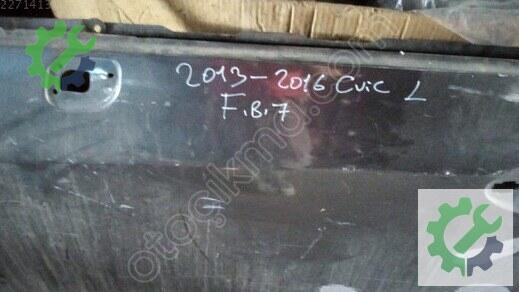 2271413
2013-2016 Cvic L
F.B.7
otoçıkma.com